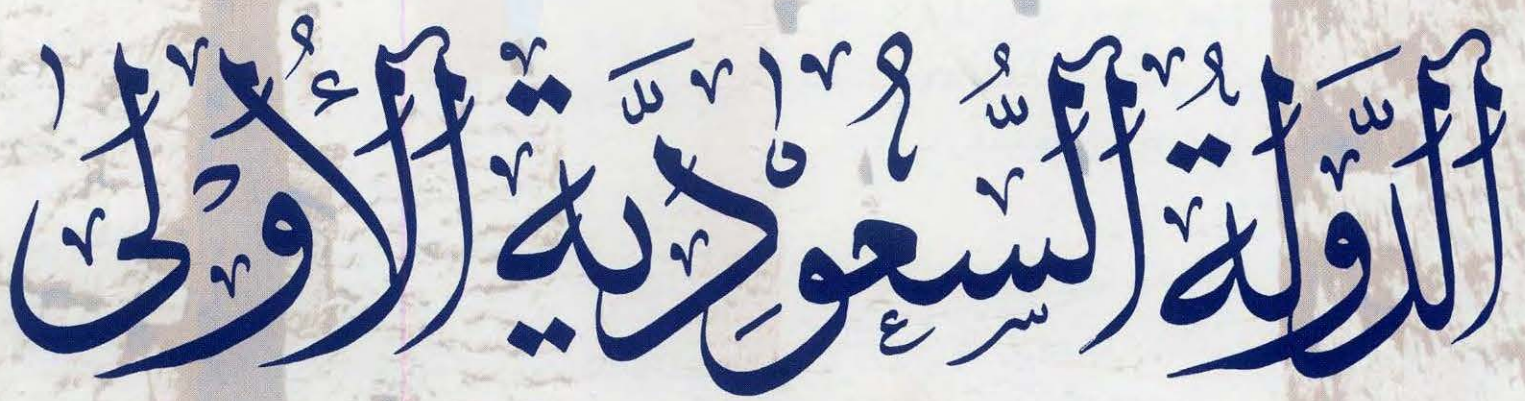 الدَّوْلَةُ السُّعُوْدِيَّةُ الأُوْلَى